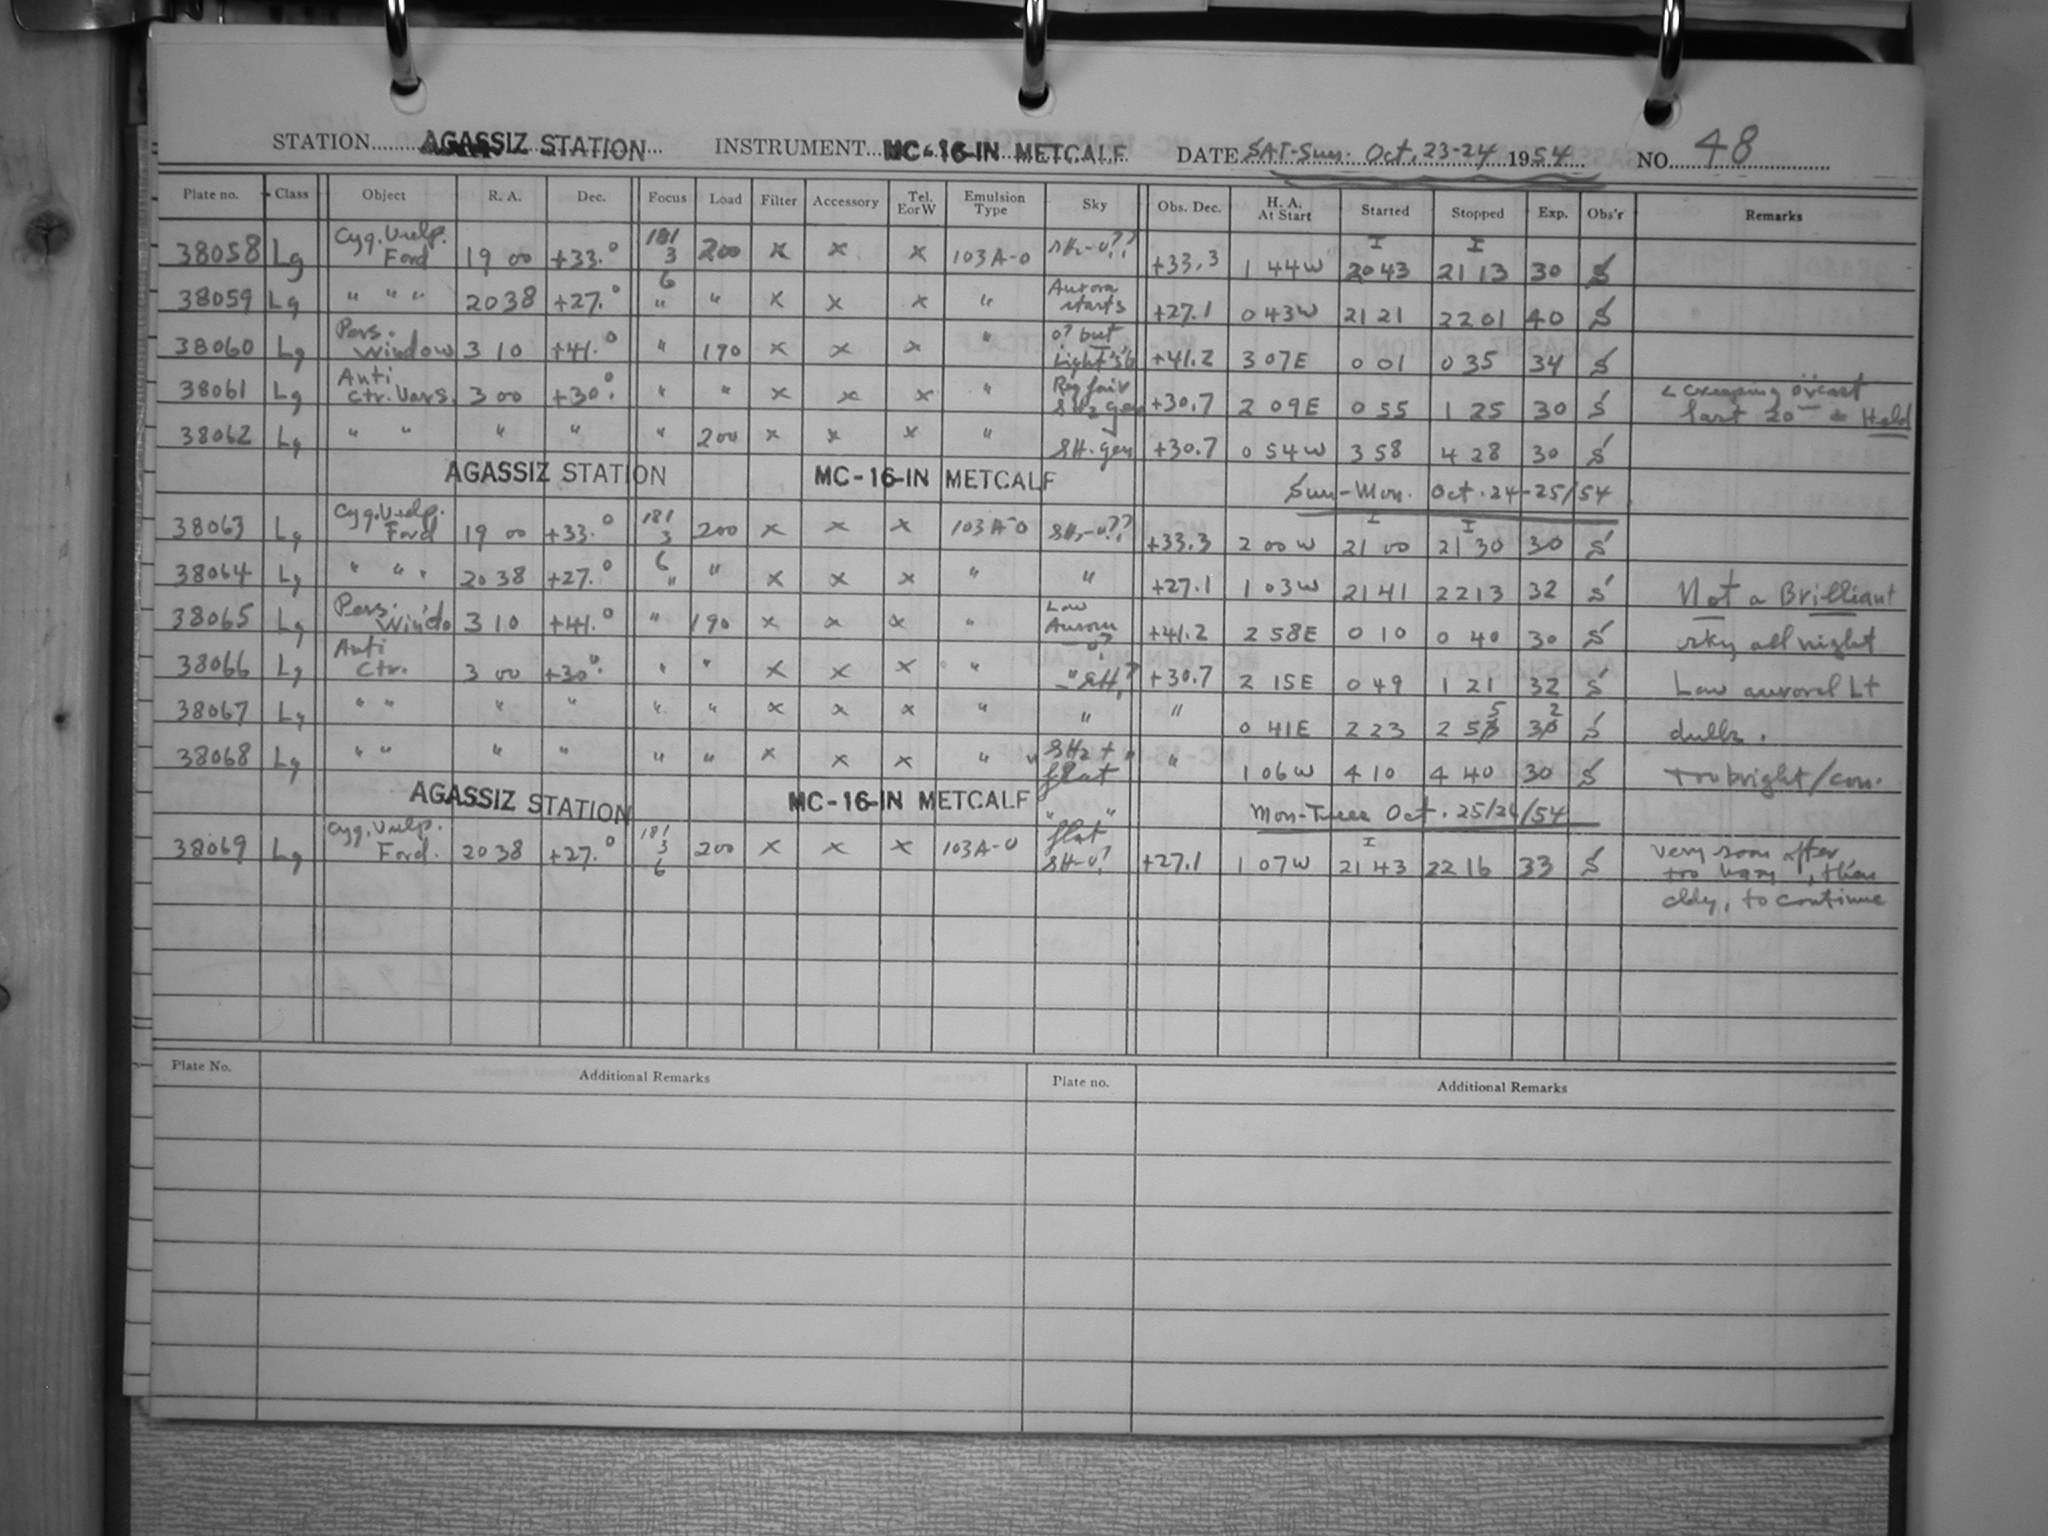 STATION AGASSIZ STATION INSTRUMENT MC-16-IN METCALF DATE SAT-Sun. Oct. 23-24 1954 NO. 48
Plate no. Class Object R. A. Dec. Focus Load Filter Accessory Tel. E or W Emulsion Type Sky Obs. Dec. H. A. At Start Started Stopped Exp. Obs'r Remarks
38058 Lg Cyg. Vulp. Ford 19 00 +33.° 181 3 6 200 x x x 103A-O SH2-0?? +33.3 1 44W 2043 2113 30 S
38059 Lg " " " 2038 +27.° " " x x x " Aurora starts +27.1 0 43W 2121 2201 40 S
38060 Lg Pers. Window 3 10 +41.° " 190 x x x " 0? but Light's +41.2 3 07E 0 01 0 35 34 S
38061 Lg Anti Ctr. Vars. 3 00 +30.° " " x x x " Reg fair SH2 gen +30.7 2 09E 0 55 1 25 30 S < creeping ovcast last 20m Held
38062 Lg " " " " " 200 x x x " SH. gen +30.7 0 54W 3 58 4 28 30 S
AGASSIZ STATION MC-16-IN METCALF Sun-Mon. Oct. 24-25/54
38063 Lg Cyg. Vulp. Ford 19 00 +33.° 181 3 6 200 x x x 103A-O SH2-0?? +33.3 2 00W 21 00 21 30 30 S
38064 Lg " " " 2038 +27.° " " x x x " " +27.1 1 03W 2141 2213 32 S Not a Brilliant
38065 Lg Pers. Windo 3 10 +41.° " 190 x x x " Low Aurora 0? +41.2 2 58E 0 10 0 40 30 S sky all night
38066 Lg Anti Ctr. 3 00 +30.° " " x x x " " SH? +30.7 2 15E 0 49 1 21 32 S Low auroral Lt
38067 Lg " " " " " " x x x " " " 0 41E 2 23 2 55 32 S dulls.
38068 Lg " " " " " " x x x " SH2 + flat " 1 06W 4 10 4 40 30 S too bright/con.
AGASSIZ STATION MC-16-IN METCALF Mon-Tues Oct. 25/26/54
38069 Lg Cyg. Vulp. Ford. 2038 +27.° 181 3 6 200 x x x 103A-O " " flat SH-0? +27.1 1 07W 2143 2216 33 S very soon after
too hazy, then
cldy, to continue
Plate No. Additional Remarks Plate no. Additional Remarks